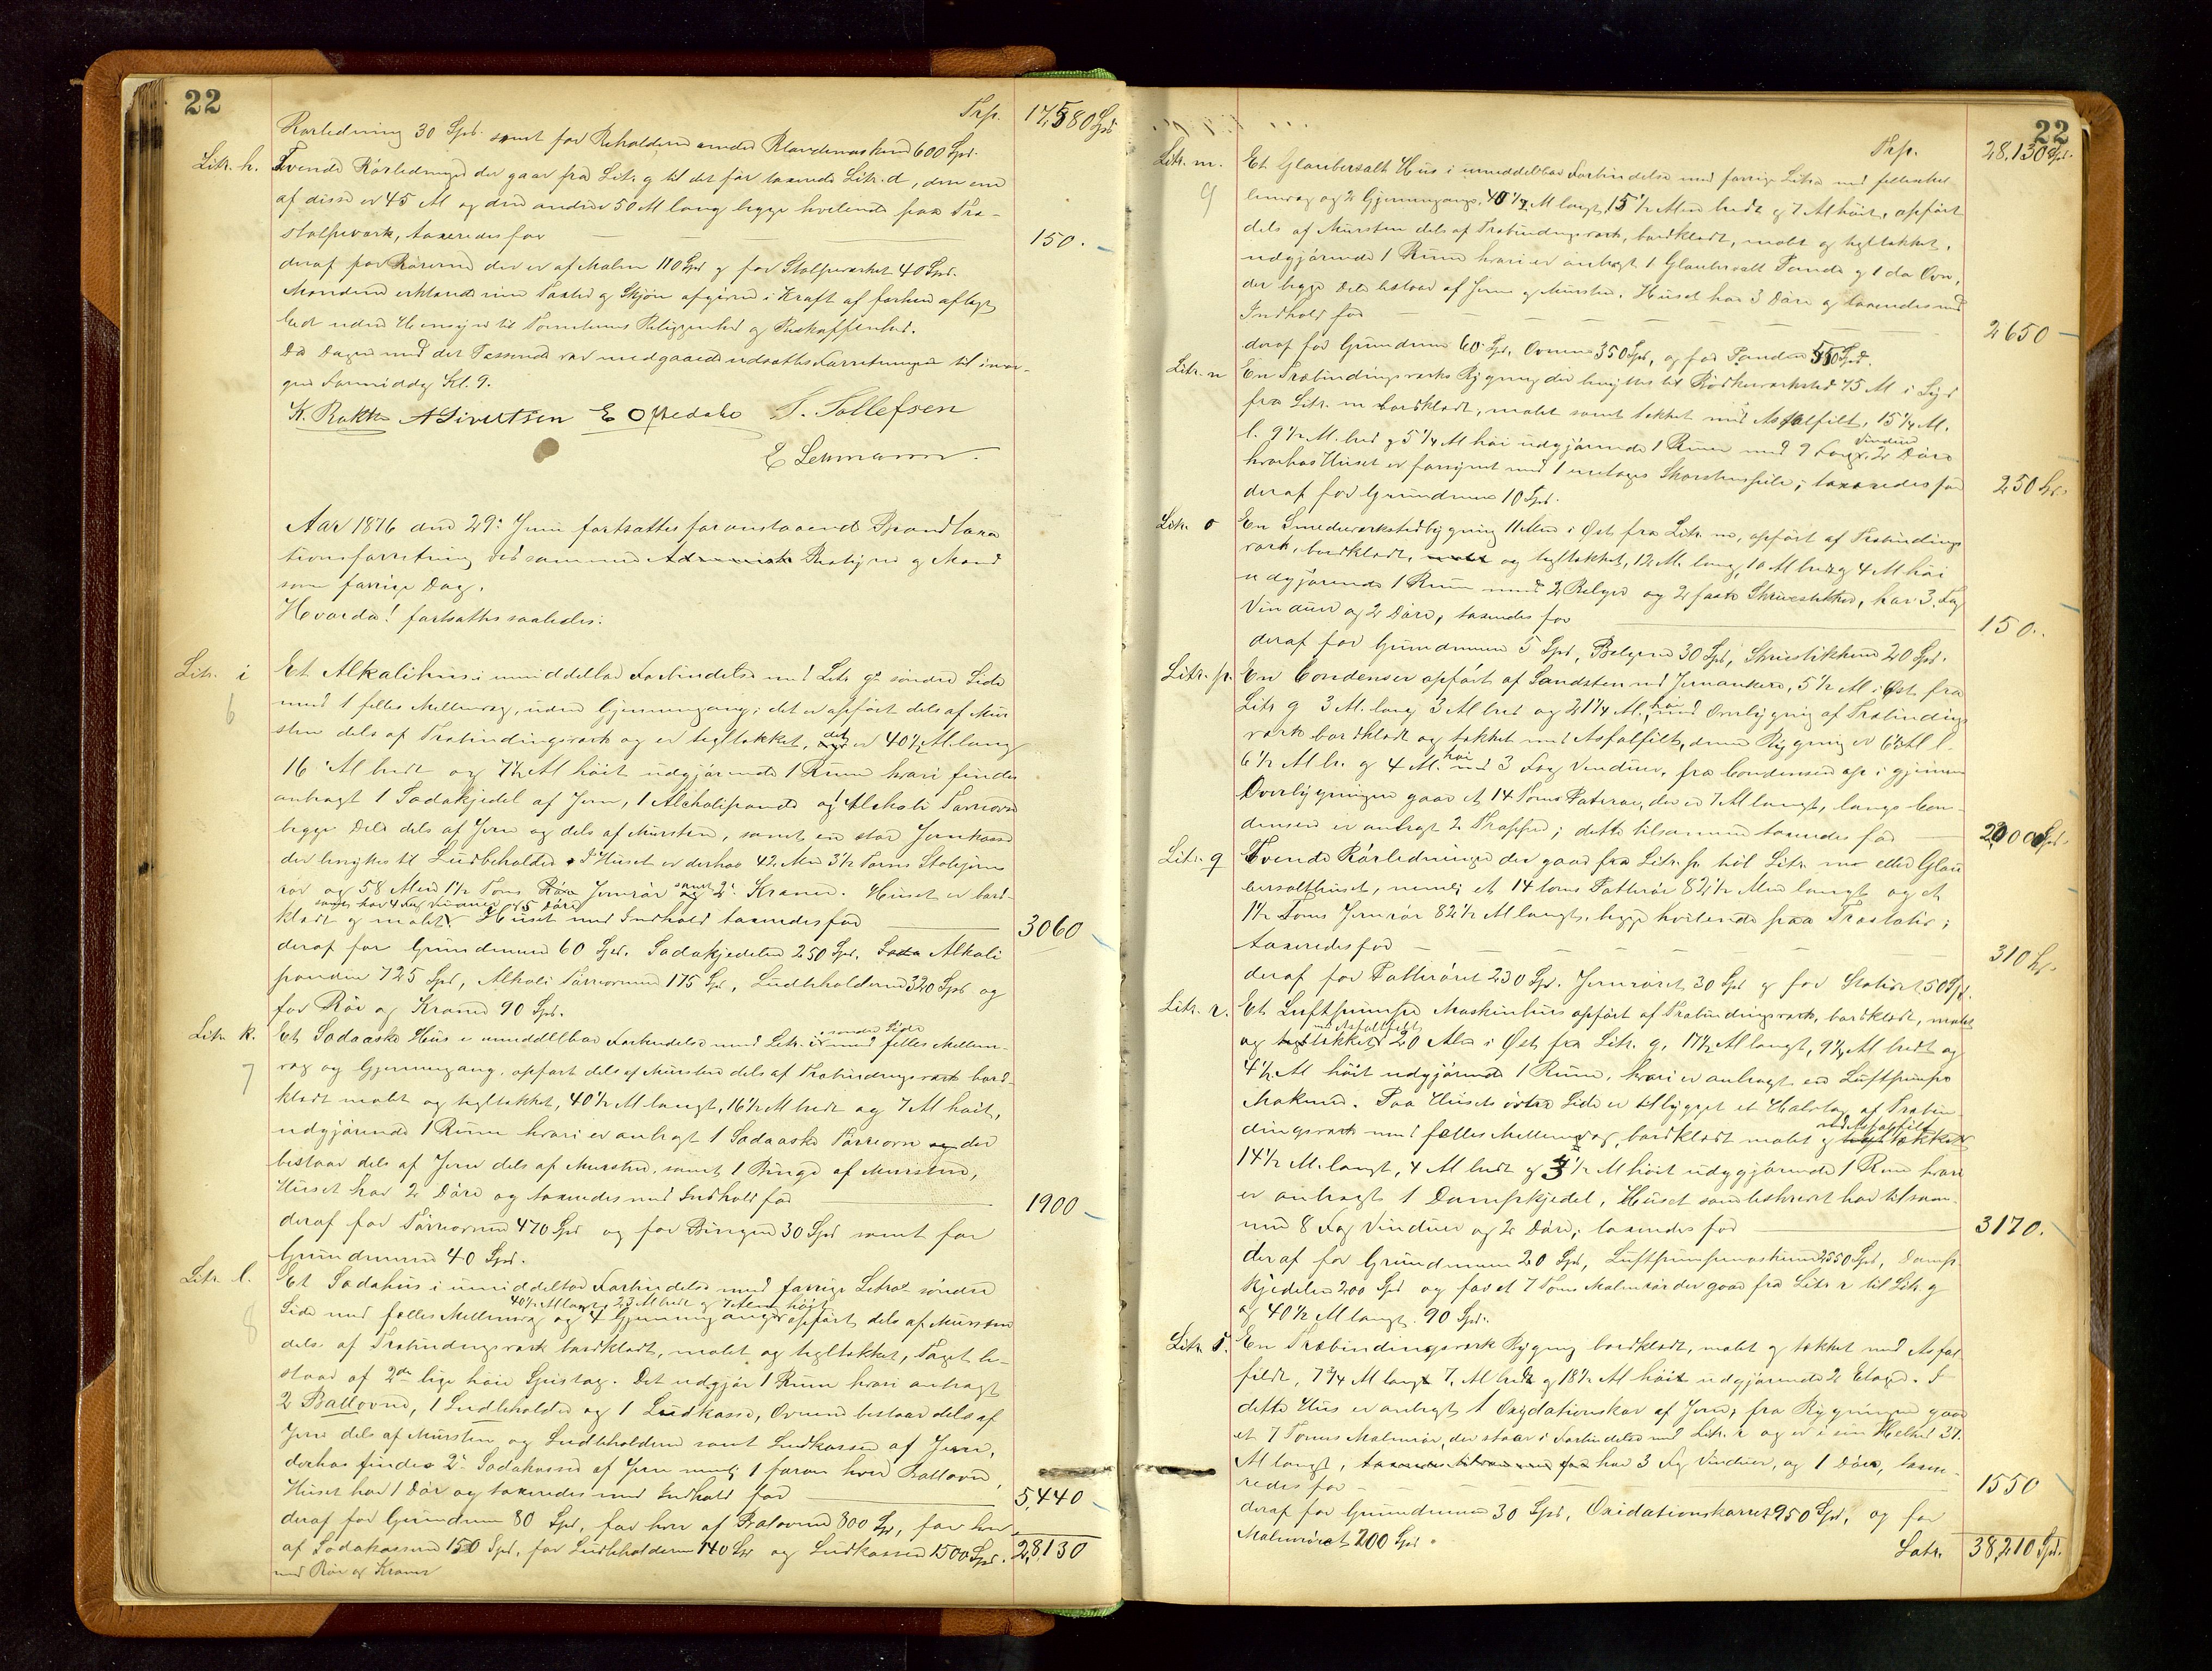 22
Trp. 17,580 Spd
Rørledning 30 Spd. samt for Beholderne under Klaredunkene 600 Spd.
Litr. h. Tvende Rørledninger der gaar fra Litr. g til det før taxerede Litr. d, den ene
af disse er 45 Al og den anden 50 Al lang begge hvilende paa Træ-
stolpeværk, taxeredes for 150. -
deraf for Rørerne der er af Malm 110 Spd og for Stolpeværket 40 Spd.
Mændene erklærede sin Taxt og Skjøn afgivne i Kraft af forhen aflagt
Eed uden Hensyn til Tomternes Beliggenhed og Beskaffenhed.
Da Dagen med det Passerede var medgaaet udsattes Forretningen til imor-
gen Formiddag Kl. 9.
K. Bakke A Sivertsen E Oftedahl T. Tollefsen
E Lehmann.
Aar 1876 den 29de Juni fortsattes foranstaaende Brandtaxa
tionsforretning ved samme Bestyrer og Mænd
som forrige Dag.
Hvorda! fortsattes saaledes:
Litr. i Et Alkalihus i umiddelbar Forbindelse med Litr. g's søndre Side
6 med 1 fælles Mellemvæg, uden Gjennemgang; det er opført dels af Mur
sten dels af Træbindingsværk og er tegltækket, det er 40½ Al. lang
16 Al bredt og 7½ Al høit udgjørende 1 Rum hvori findes
anbragt 1 Sodakjedel af Jern, 1 Alkalipande og 1 Alkali Tørreovn
begge Dele dels af Jern og dels af Mursten, samt en stor Jernkasse
der benyttes til Ludbeholder. I Huset er derhos 42 Alen 3½ Toms Støbejerns
rør og 58 Alen 1½ Toms Jernrør samt 2de Kraner. Huset er bord-
samt har 4 Fag Vinduer og 5 Døre
klædt og malet. Huset med Indhold taxeredes for 3060 -
deraf for Grundmuren 60 Spd. Sodakjedelen 250 Spd. Alkali
panden 725 Spd, Alkali Tørreovnen 175 Spd, Ludbeholderen 320 Spd og
for Rør og Kraner 90 Spd.
Litr. k. Et Sodaaske Hus i umiddelbar Forbindelse med Litr. i søndre Side med fælles Mellem-
7 væg og Gjennemgang. opført dels af Mursten dels af Træbindingsværk bord-
klædt malet og tegltækket, 40½ Al langt, 16½ Al bredt og 7 Al høit,
udgjørende 1 Rum hvori er anbragt 1 Sodaaske Tørreovn der
bestaar dels af Jern dels af Mursten, samt 1 Binge af Mursten,
Huset har 2 Døre og taxeredes med Indhold for 1900 -
deraf for Tørreovnen 470 Spd og for Bingen 30 Spd samt for
Grundmuren 40 Spd.
Litr. l. Et Sodahus i umiddelbar Forbindelse med forrige Litras søndre
40½ Al langt, 23 Al bredt og 7 Alen høit
8 Side med fælles Mellemvæg og 4 Gjennemgange opført dels af Mursten
dels af Træbindingsværk bordklædt, malet og tegltækket, Taget be-
staar af 2de lige høie Spidstag. Det udgjør 1 Rum hvori anbragt
2 Ballovne, 1 Ludbeholder og 1 Ludkasse, Ovnene bestaar dels af
Jern dels af Mursten og Ludbeholderen samt Ludkassen af Jern,
derhos findes 2de Sodakasser af Jern nemlig 1 foran hver Ballovn,
Huset har 1 Dør og taxeredes med Indhold for 5,440 -
deraf for Grundmuren 80 Spd, for hver af Ballovnene 800 Spd, for hver
af Sodakasserne 150 Spd, for Ludbeholderen 140 Spd og Ludkassen 1500 Spd. 28,130
med Rør og Kraner
22
Trp. 28,130 Spd.
Litr. m. Et Glaubersalt Hus i umiddelbar Forbindelse med forrige Litra med fælles Mel
9 lemvæg og 2 Gjennemgange, 40¼ Al langt, 15½ Alen bredt og 7 Al høit, opført
dels af Mursten dels af Træbindingsværk, bordklædt, malet og tegltækket,
udgjørende 1 Rum hvori er anbragt 1 Glaubersalt Pande og 1 do Ovn,
der begge Dele bestaar af Jern og Mursten. Huset har 3 Døre og taxeredes med
Indhold for 2650 -
deraf for Grundmuren 60 Spd, Ovnen 350 Spd, og for Panden 550 Spd.
Litr. n En Træbindingsværks Bygning der benyttes til Bødkerværksted 75 Al i Syd
fra Litr. m bordklædt, malet samt tækket med Asfalfilt, 15¼ Al.
l. 9½ Al. bred og 5¼ Al høi udgjørende 1 Rum med 9 Fag Vinduer, 2 Døre
hvorhos Huset er forsynet med 1 enetages Skorstenspibe; taxeredes for 250 Spd
deraf for Grundmuren 10 Spd.
Litr. o En Smedeværkstedbygning 11 Alen i Øst fra Litr. m, opført af Træbindings
værk, bordklædt, og tegltækket, 12 Al. lang, 10 Al bred og 4 Al høi
udgjørende 1 Rum med 2 Belger og 2 faste Skruestikker, har 3 Fag
Vinduer og 2 Døre, taxeredes for 150. -
deraf for Grundmuren 5 Spd, Belgerne 30 Spd, Skruestikkerne 20 Spd.
Litr. p. En Condensor opført af Sandsten med Jernankere, 5½ Al i Øst fra
Litr g 3 Al. lang 3 Al bred og 21¼ Al. høi, med Overbygning af Træbindings
værk bordklædt og tækket med Asfalfilt, denne Bygning er 6½ Al l.
6½ Al br. og 4 Al. høi med 3 Fag Vinduer, fra Condensoren op i gjennem
Overbygningen gaar et 14 Toms Paterør, der er 7 Al langt, langs Con-
densoren er anbragt 2 Trapper; dette tilsammen taxeredes for 2000 Spd.
Litr. q Tvende Rørledninger der gaar fra Litr. p til Litr. m eller Glau
bersalthuset, nemlig et 14 toms Potterør 82½ Alen langt og et
1½ Toms Jernrør 82½ Al langt, begge hvilende paa Træstativ;
taxeredes for 310 Spd
deraf for Potterøret 230 Spd. Jernrøret 30 Spd og for Stativet 50 Spd.
Litr. r. Et Luftpumpe Maskinhus opført af Træbindingsværk, bordklædt, malet
med Asfaltfilt
og tækket 20 Alen i Øst fra Litr. g, 17½ Al langt, 9½ Al bredt og
4½ Al høit udgjørende 1 Rum, hvori er anbragt en Luftpumpe
Maskine. Paa Husets østre Side er tilbygget et Halvtag af Træbin-
dingsværk med fælles Mellemvæg, bordklædt malet og med Asfalfilt tækket
14½ Al. langt, 4 Al bredt og 3½ Al høit udgjørende 1 Rum hvori
er anbragt 1 Dampkjedel, Huset som beskrevet har tilsam-
men 8 Fag Vinduer og 2 Døre; taxeredes for 3170. -
deraf for Grundmuren 20 Spd, Luftpumpemaskinen 2550 Spd, Damp-
kjedelen 200 Spd og for et 7 Toms Malmrør der gaar fra Litr. r til Litr. g
og 40½ Al langt 90 Spd.
Litr. s. En Træbindingsværk Bygning bordklædt, malet og tækket med Asfal
fildt, 7¾ Al langt 7, Al bredt og 18½ Al høit udgjørende 2 Etager. I
dette Hus er anbragt 1 Oxydationskar af Jern; fra Bygningen gaar
et 7 Toms Malmrør, der staar i Forbindelse med Litr. r og er i sin Helhed 37
Al langt, har 3 Fag Vinduer, og 1 Dør, taxe-
redes for 1550 -
deraf for Grundmuren 30 Spd, Oxidationskarret 950 Spd, og for
Malmrøret 200 Spd.
Latr. 38,210 Spd.